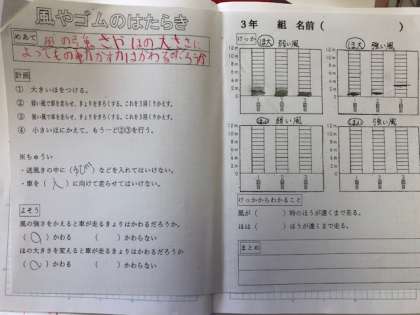 風やゴムのはたらき
めあて
風の強さやほの大きさに
よってもの動かす力はかわるだろうか
計画
① 大きいほをつける。
② 弱い風で車を走らせ、きょりをきろくする。これを3回くりかえす。
③ 強い風で車を走らせ、きょりをきろくする。これを3回くりかえす。
④ 小さいほにかえて、もう一ど②③を行う。
※ちゅうい
・送風きの中に(ゆび)などを入れてはいけない。
・車を(人)に向けて走らせてはいけない。
よそう
風の強さをかえると車が走るきょりはかわるだろうか。
(○)かわる ( )かわらない
ほの大きさを変えると車が走るきょりはかわるだろうか
(○)かわる ( )かわらない
3年 組 名前( )
けっか
ほ大 弱い風
ほ大 強い風
12m
10m
8m
6m
4m
2m
0m
1回目 2回目 3回目
弱い風
強い風
けっかからわかること
風が( )時のほうが遠くまで走る。
ほは( )ほうが遠くまで走る。
まとめ